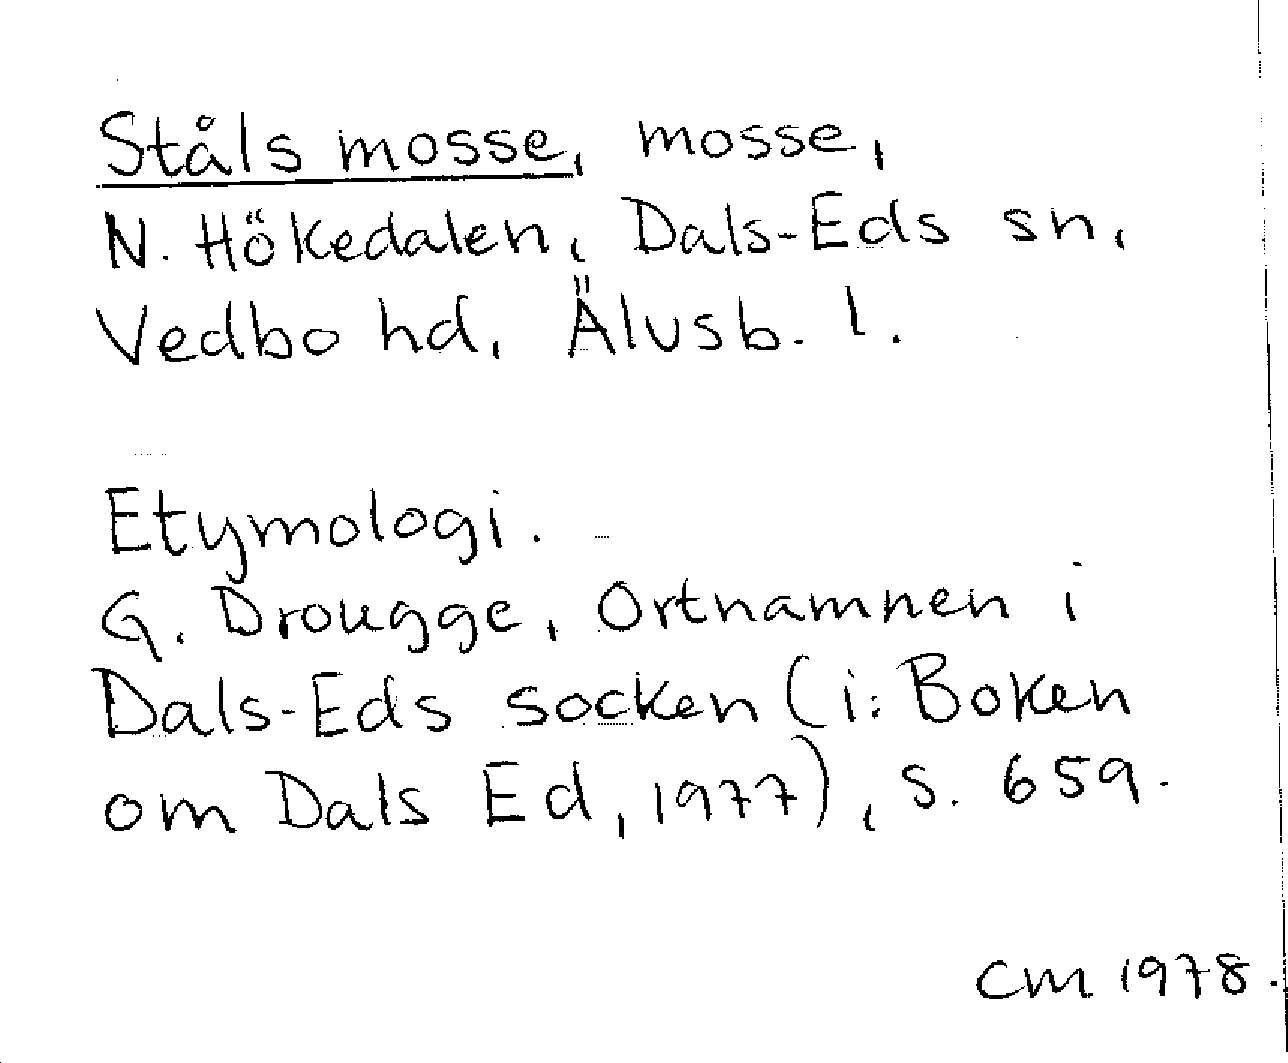 Ståls mosse, mosse,
N. Hökedalen, Dals-Eds sn,
Vedbo hd, Älvsb. l.
Etymologi.
G. Drougge, Ortnamnen i
Dals-Eds socken (i: Boken
om Dals Ed, 1977), s. 659.
CM 1978.